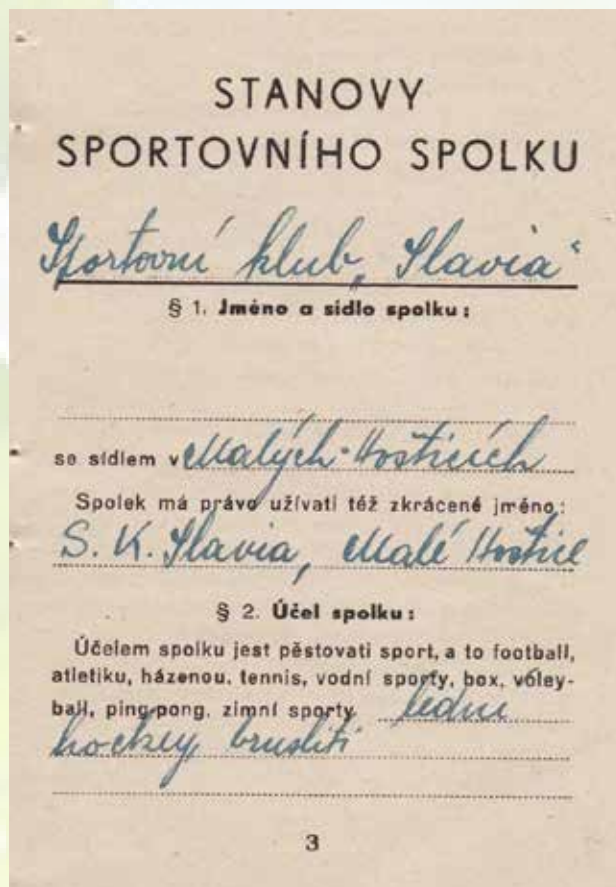 STANOVY
SPORTOVNÍHO SPOLKU
Sportovní klub „Slavia“
§ 1. Jméno a sídlo spolku:
se sídlem v Malých-Hošticích
Spolek má právo užívati též zkrácené jméno:
S. K. Slavia, Malé Hoštice
§ 2. Účel spolku:
Účelem spolku jest pěstovati sport, a to football,
atletiku, házenou, tennis, vodní sporty, box, volley-
ball, ping-pong, zimní sporty lední
hockey, bruslití
3